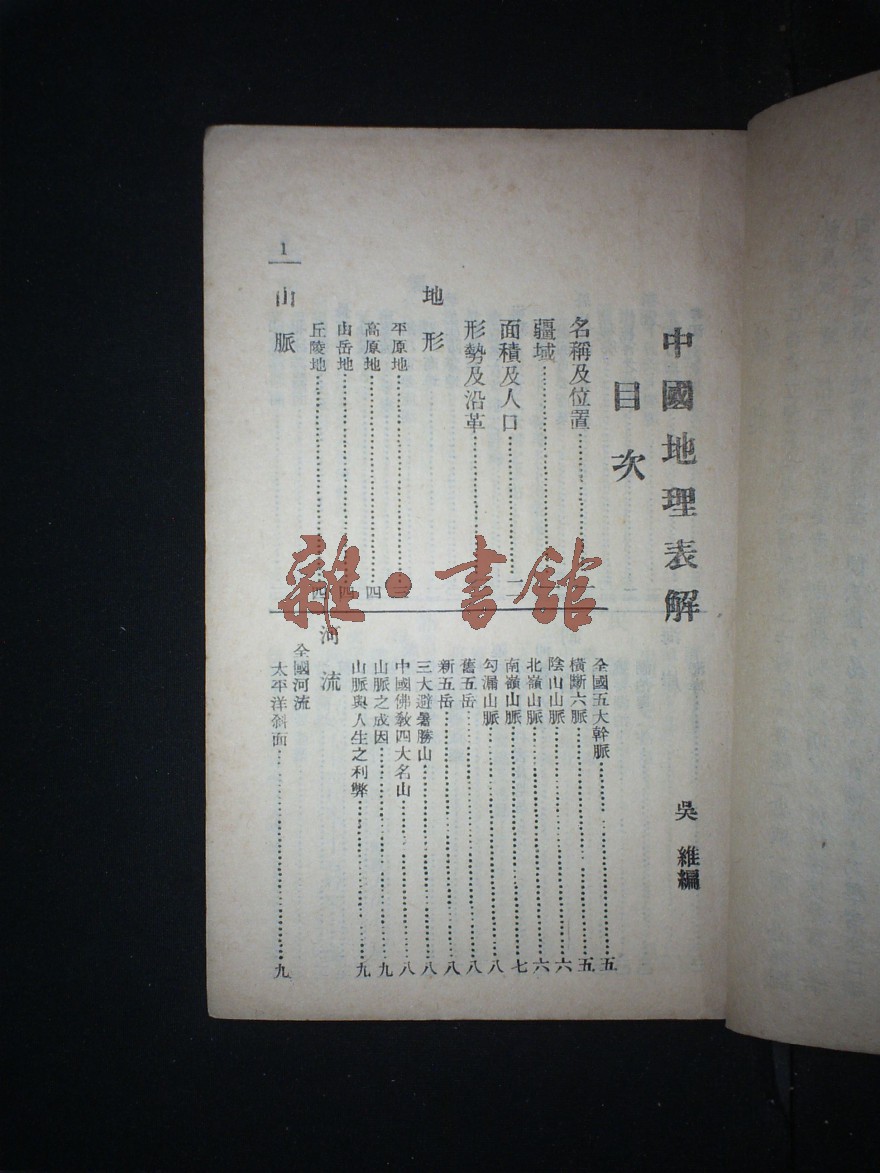 中國地理表解
吳維編
目次
名稱及位置
疆域
面積及人口
形勢及沿革
地形
平原地
高原地……四
山岳地……四
丘陵地……四
山脈
全國五大幹脈……五
橫斷六脈……五
陰山山脈……六
北嶺山脈……六
南嶺山脈……七
勾漏山脈……八
舊五岳……八
新五岳……八
三大避暑勝山……八
中國佛教四大名山……八
山脈之成因……九
山脈與人生之利弊……九
河流
全國河流
太平洋斜面……九
1
雜·書館